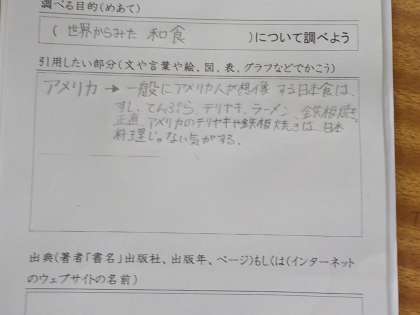 調べる目的(めあて)
(世界からみた 和食 )について調べよう
引用したい部分(文や言葉や絵、図、表、グラフなどでかこう)
アメリカ → 一般にアメリカ人が想像する日本食は、
すし、てんぷら、テリヤキ、ラーメン、鉄板焼き。
正直、アメリカのテリヤキや鉄板焼きは、日本
料理じゃない気がする。
出典(著者「書名」出版社、出版年、ページ)もしくは(インターネット
のウェブサイトの名前)